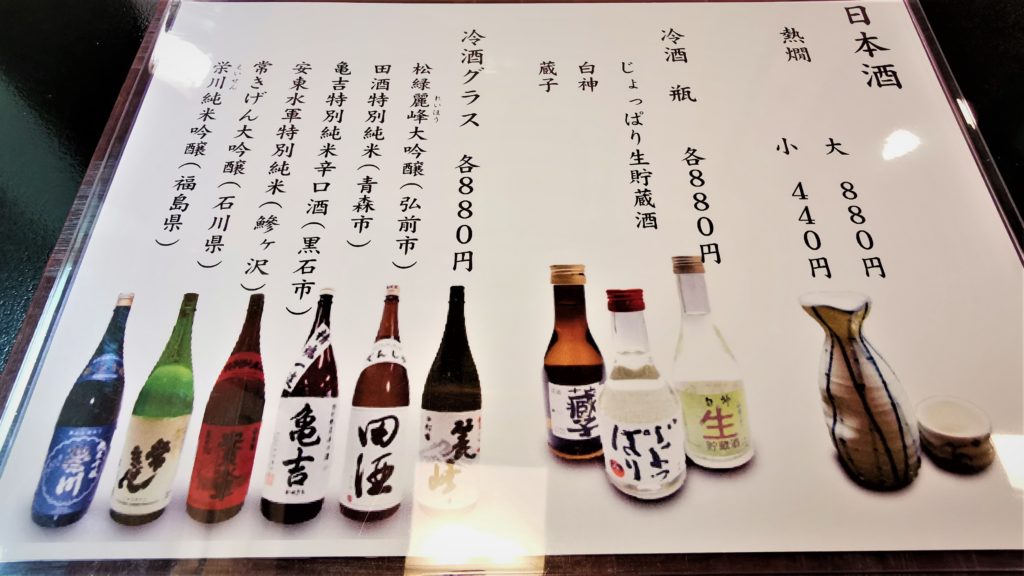 日本酒
熱燗
大 880円
小 440円
冷酒 瓶 各880円
じょっぱり生貯蔵酒
白神
蔵子
冷酒グラス 各880円
松緑麗峰大吟醸(弘前市)
れいほう
田酒特別純米(青森市)
亀吉特別純米辛口酒(黒石市)
安東水軍特別純米(鰺ヶ沢)
常きげん大吟醸(石川県)
栄川純米吟醸(福島県)
えいせん
田酒
亀吉
蔵子
じょっぱり
生
貯蔵酒